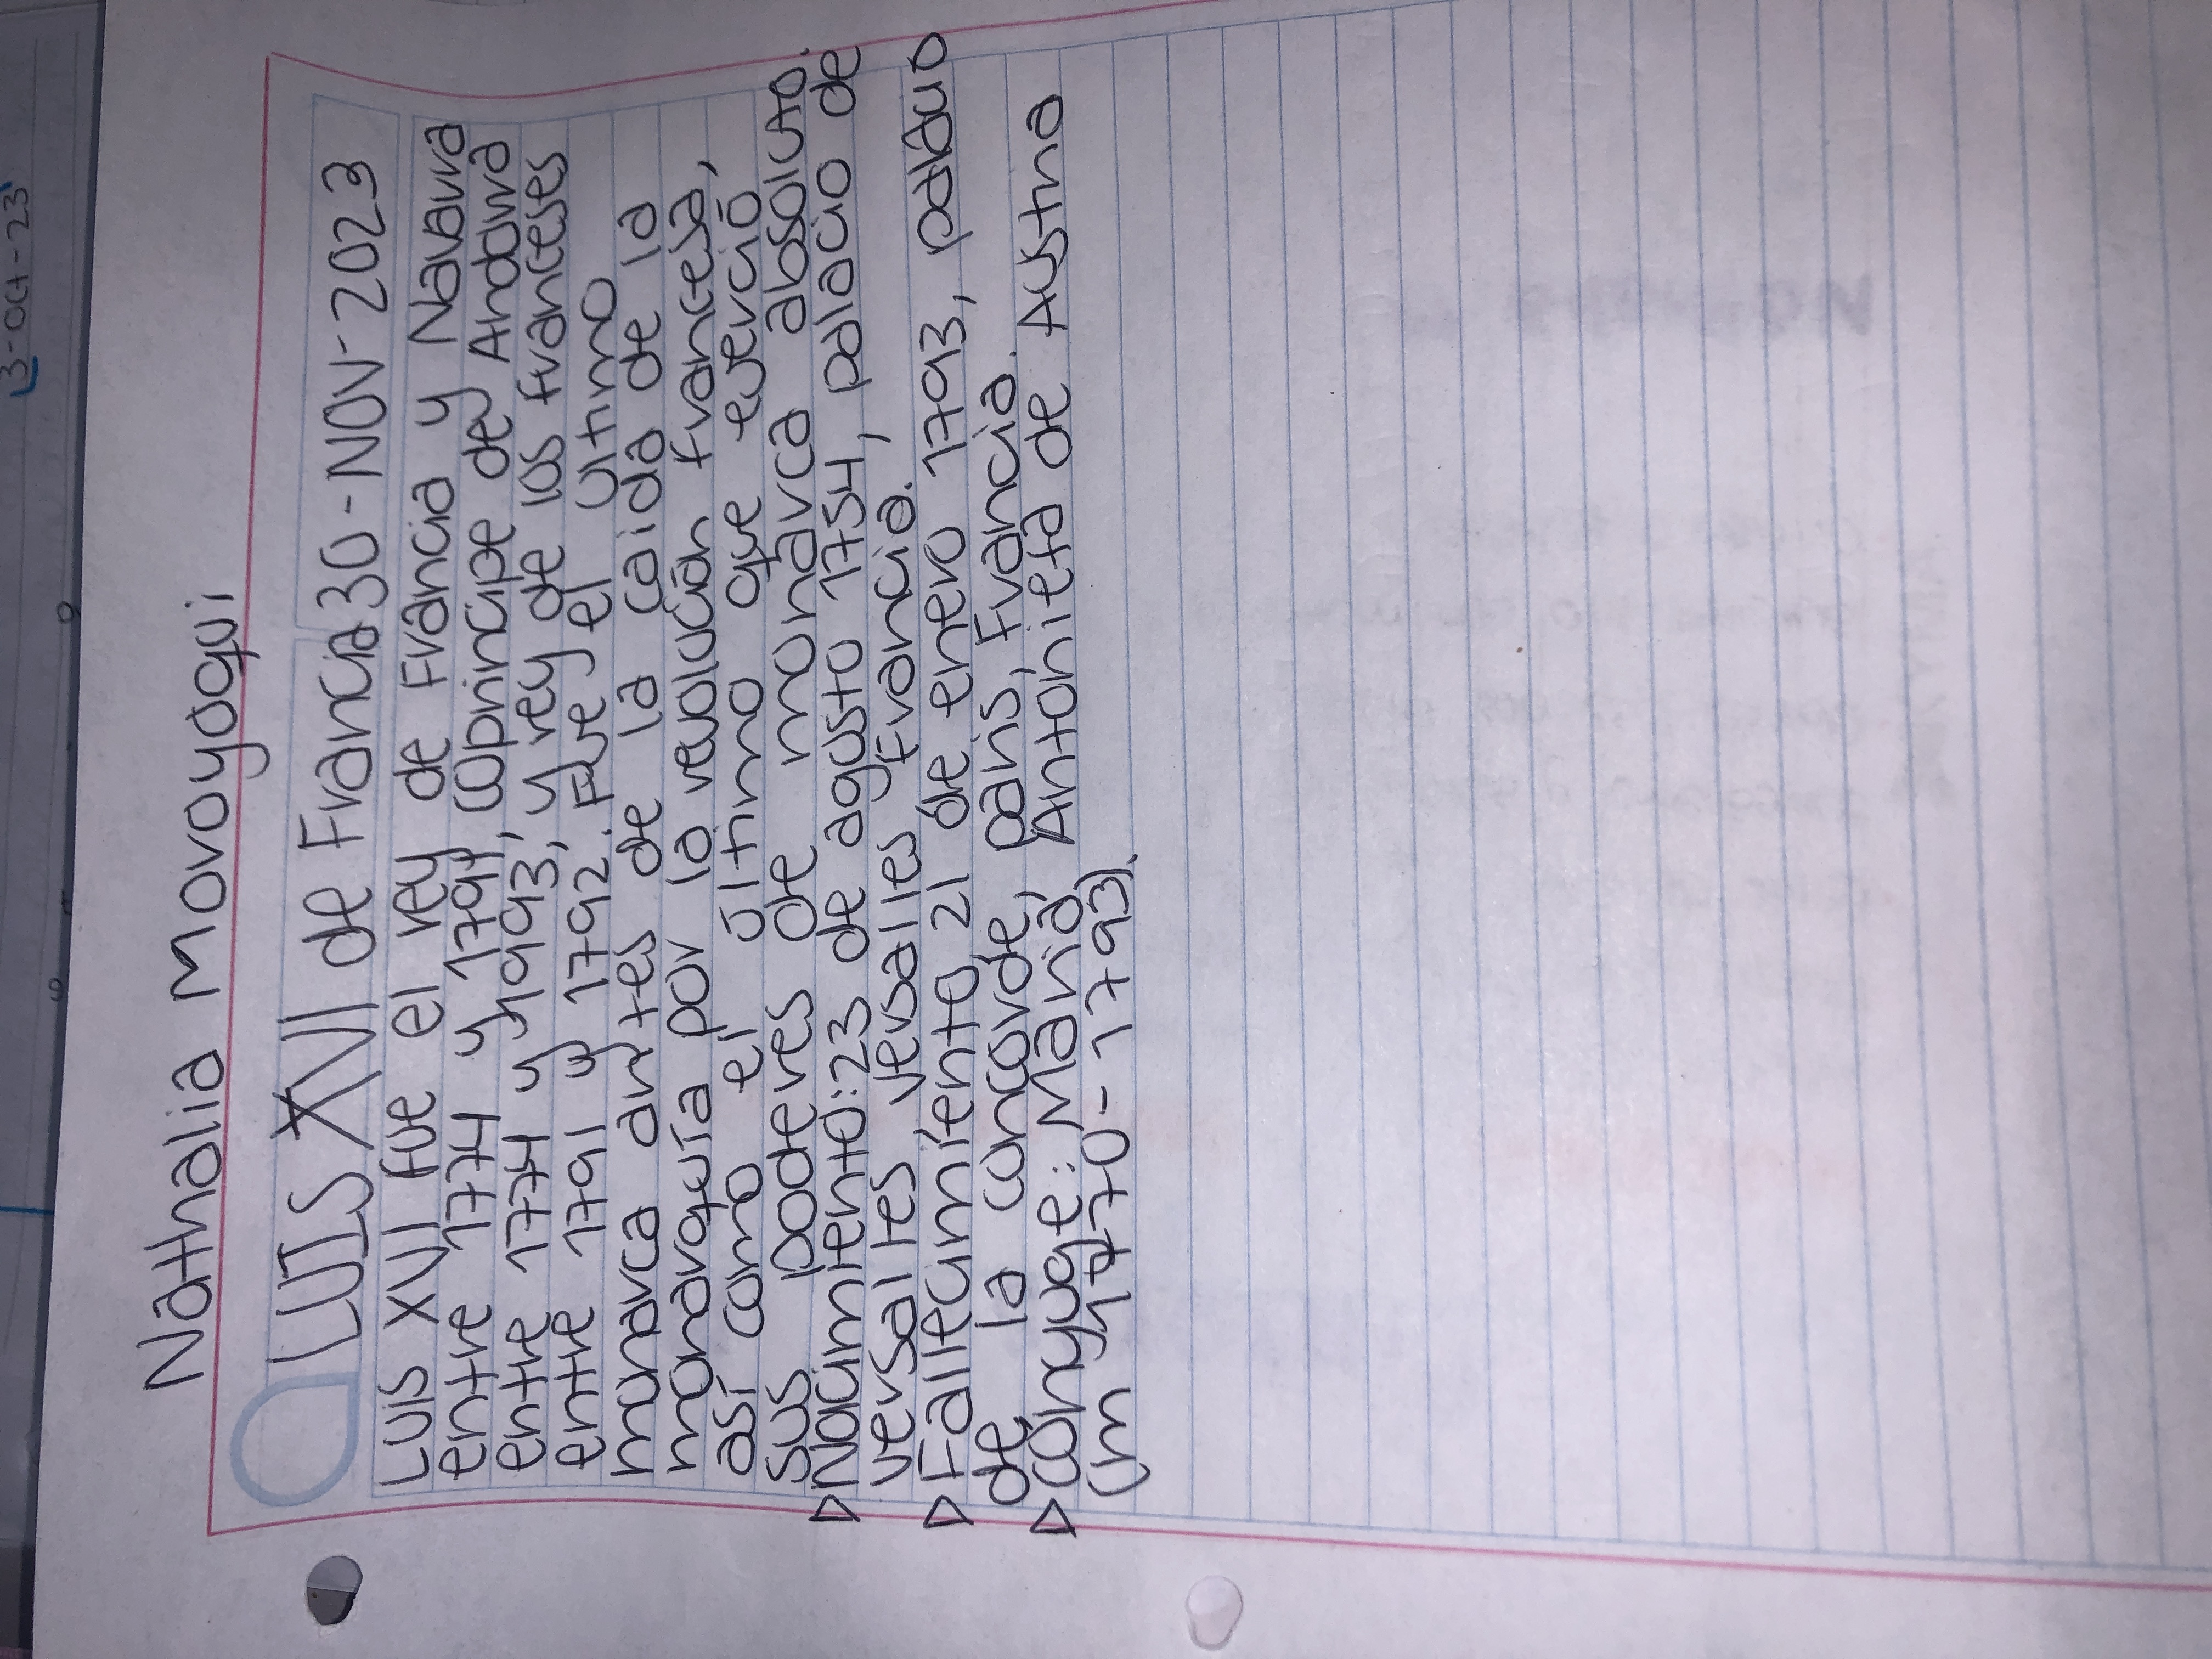 3-Oct-23
Nathalia Moroyoqui
LUIS XVI de Francia 30-NOV-2023
LUIS XVI fue el rey de Francia y Navarra
entre 1774 y 1791, Coprincipe dey Andorra
entre 1774 y 1993, y rey de los franceses
entre 1791 y 1792. Fue el Ultimo
monarca antes de la caida de la
monarquía por la revolución francesa,
así como el último que ejerció
sus poderes de monarca absoluto.
▷Nacimiento: 23 de agusto 1754, palacio de
versalles versalles Francia.
▷Fallecimíento 21 de enero 1793, palacio
de la concorde, paris, Francia.
▷Cónyuge: Maria Antonieta de Austria
(m 1770-1793).